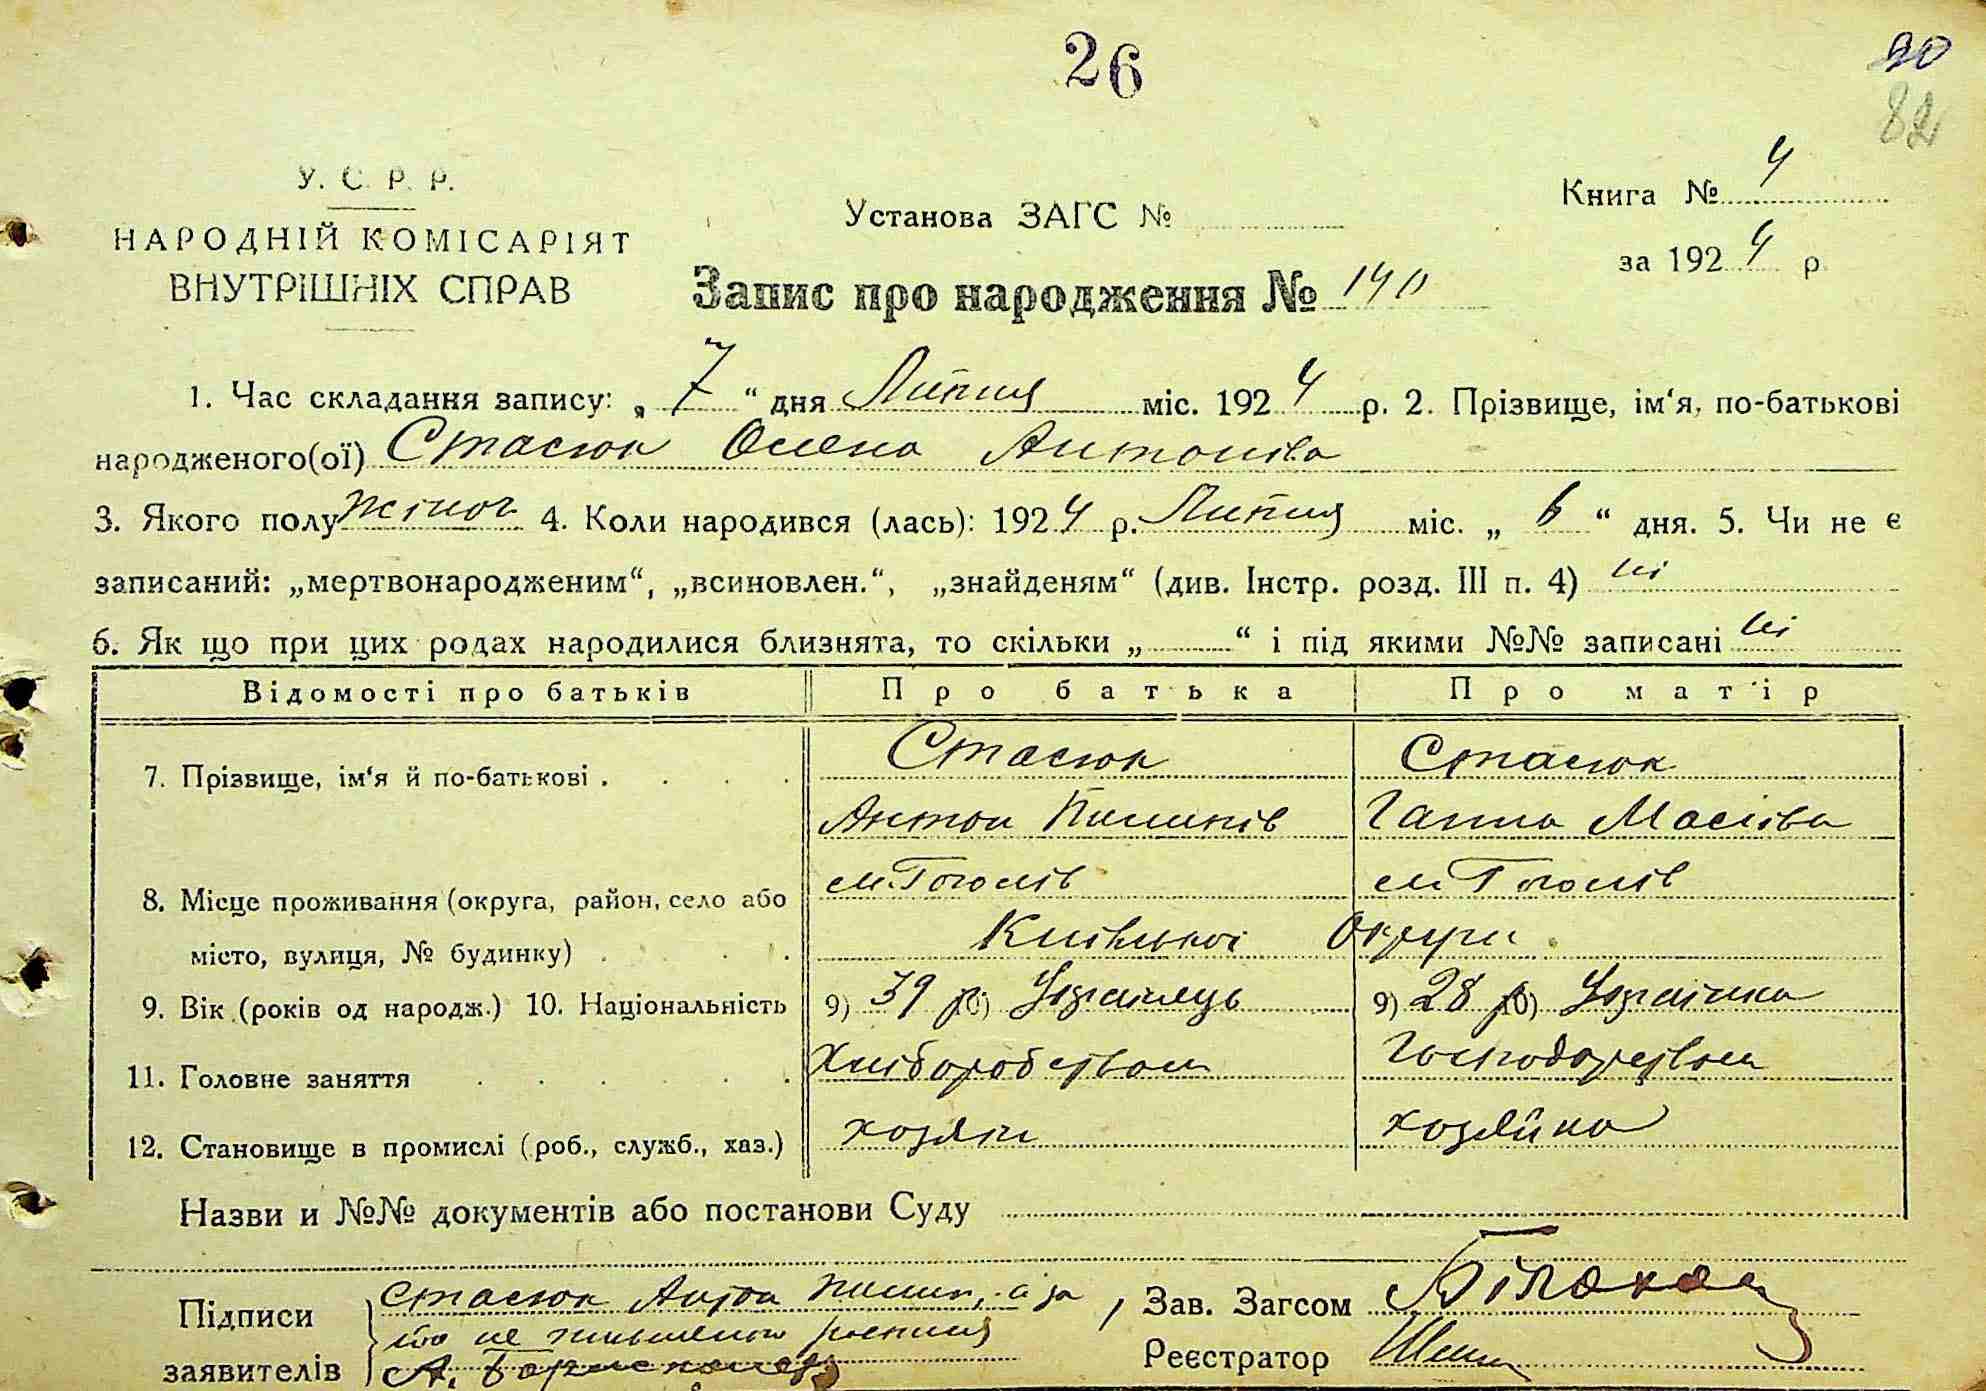 26
80
82
У. С. Р. Р.
НАРОДНІЙ КОМІСАРІЯТ
ВНУТРІШНІХ СПРАВ
Установа ЗАГС №
Книга № 4
за 1924 р.
Запис про народження № 140
1. Час складання запису: „7“ дня Липня міс. 1924 р. 2. Прізвище, ім‘я, по-батькові
народженого(ої) Стасюк Олена Антонівa
3. Якого полу жіноч 4. Коли народився (лась): 1924 р. Липня міс. „6“ дня. 5. Чи не є
записаний: „мертвонародженим“, „всиновлен.“, „знайденям“ (див. Інстр. розд. III п. 4) ні
6. Як що при цих родах народилися близнята, то скільки „ “ і під якими №№ записані ні
Відомості про батьків Про батька Про матір
7. Прізвище, ім‘я й по-батькові . Стасюк Стасюк
Антон Пилипів Ганна
8. Місце проживання (округа, район, село або м. Гоголів м. Гоголів
місто, вулиця, № будинку) Київської Округи
9. Вік (років од народж.) 10. Національність 9) 39 р 10) Українець 9) 28 р 10) Українка
11. Головне заняття Хліборобством Господарством
12. Становище в промислі (роб., служб., хаз.) хозяїн хозяйка
Назви и №№ документів або постанови Суду
Підписи
заявителів
Стасюк Антон Пилип, а за
його не письменого росписа
А.
Зав. Загсом
Реєстратор